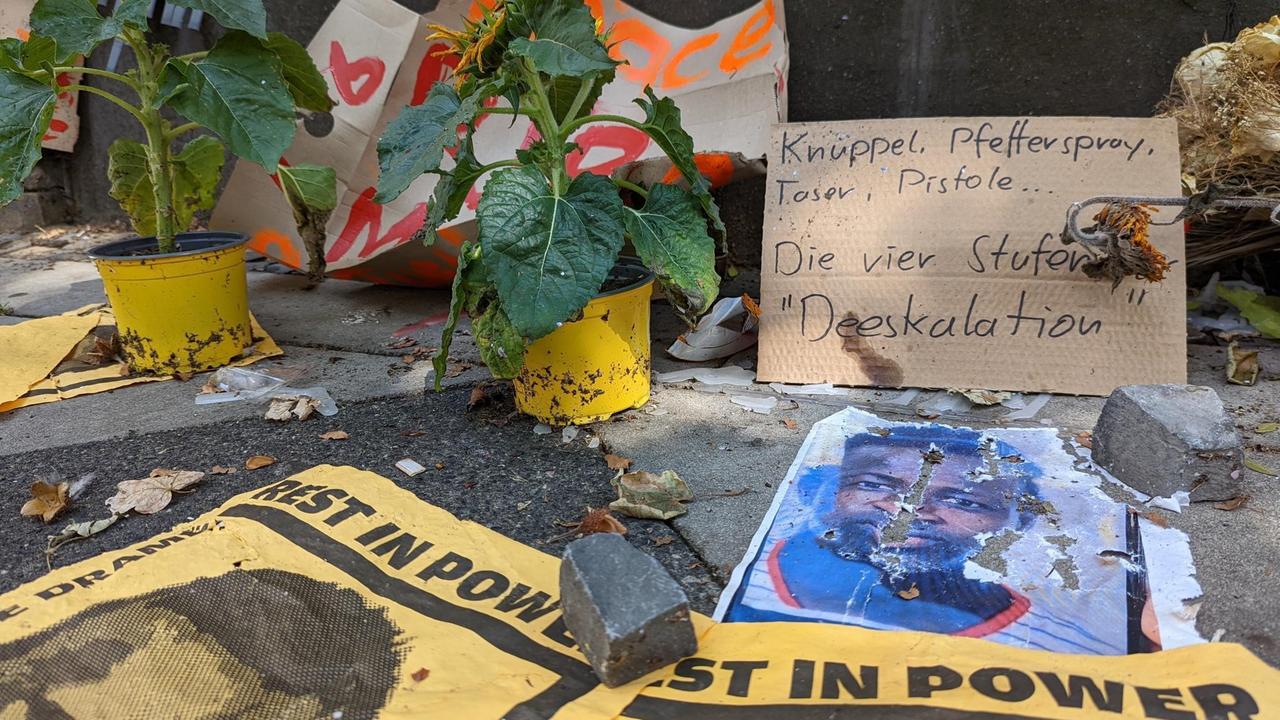 ace
Knüppel, Pfefferspray,
Taser, Pistole...
Die vier Stufen
"Deeskalation"
REST IN POWE
E DRAME
EST IN POWER